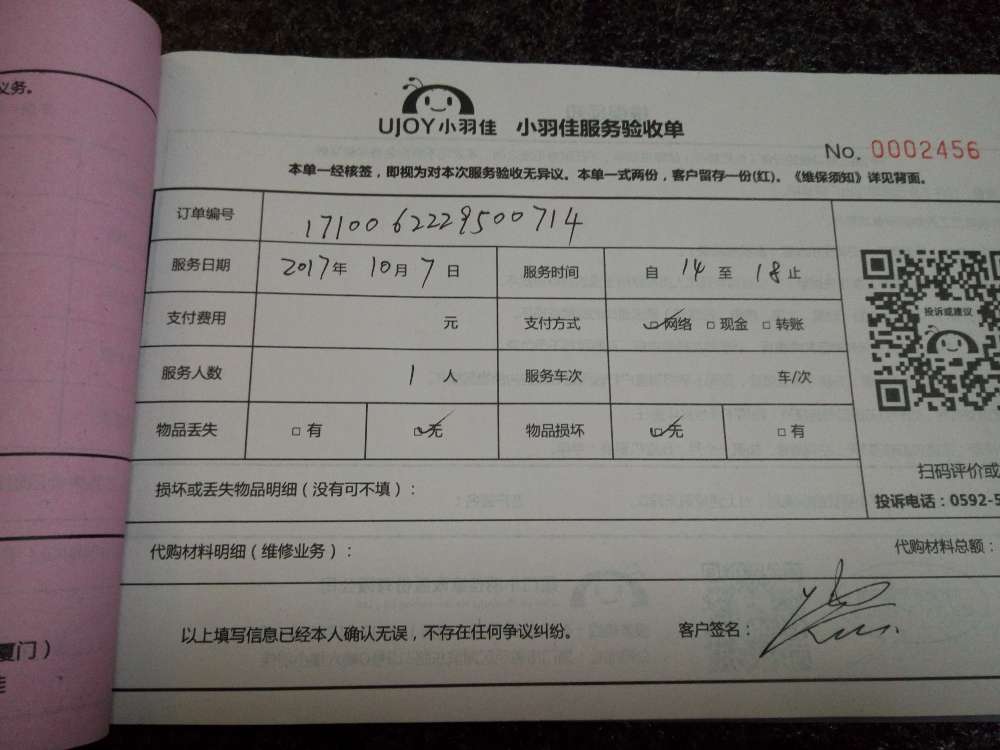 义务。
UJOY小羽佳 小羽佳服务验收单
No. 0002456
本单一经核签，即视为对本次服务验收无异议。本单一式两份，客户留存一份(红)。《维保须知》详见背面。
订单编号 17100 62229500714
服务日期 2017年 10月 7日 服务时间 自 14 至 18止
投诉或建议
支付费用 元 支付方式 网络 现金 转账
服务人数 1 人 服务车次 车/次
物品丢失 有 无 物品损坏 无 有
扫码评价或
损坏或丢失物品明细（没有可不填）：
投诉电话：0592-5
代购材料明细（维修业务）： 代购材料总额：
以上填写信息已经本人确认无误，不存在任何争议纠纷。 客户签名：
厦门）